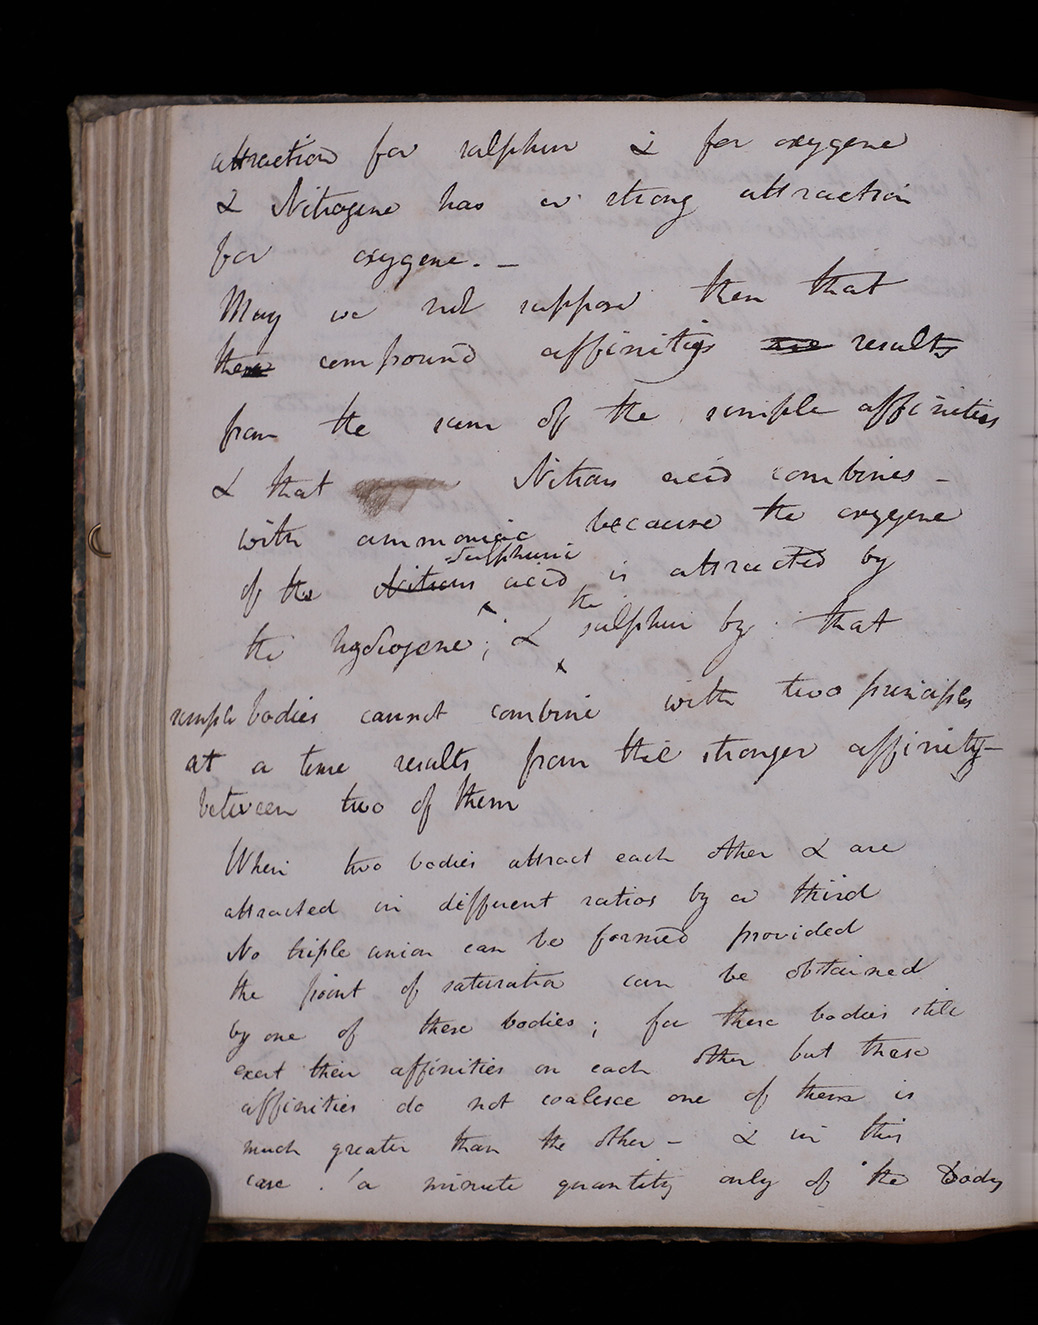 attraction for sulphur & for oxygene
& Nitrogene has a strong attraction
for oxygene. –
May we not suppose then that
the compound affinities results
from the sum of the simple affinities
& that Nitrous acid combines –
with ammoniac because the oxygene
of the Nitrous acid is attracted by
Sulphuric
the hydrogene; & the sulphur by that
simple bodies cannot combine with two principles
at a time results from the stronger affinity –
between two of them
When two bodies attract each other & are
attracted in different ratios by a third
No triple union can be formed provided
the point of saturation can be obtained
by one of these bodies; for these bodies still
exert their affinities on each other but these
affinities do not coalesce one of them is
much greater than the other – & in this
case a minute quantity only of the Body